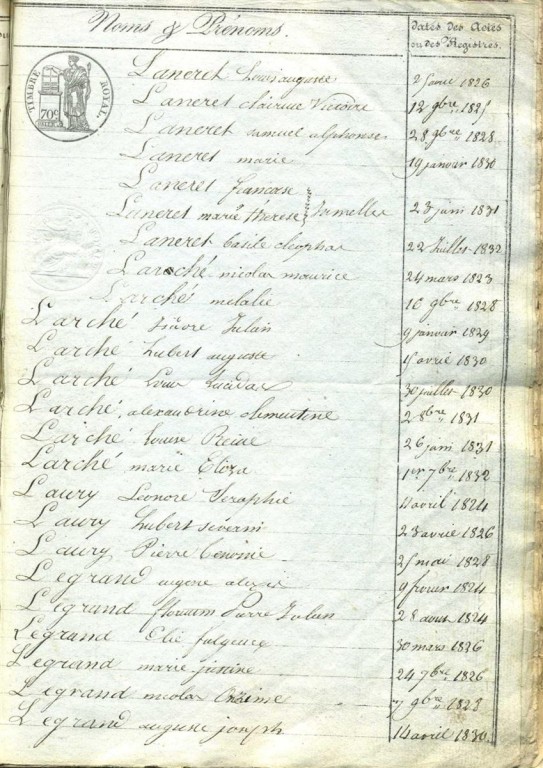 Noms & Prénoms.
dates des Actes
ou des Registres.
TIMBRE ROYAL.
70c
Laneret Louis auguste 2 janvr 1826
Laneret clairice Victoire 12 9bre 1825
Laneret samuel alphonse 28 9bre 1828
Laneret marie 19 janvier 1830
Laneret francoise
Laneret marie therese Jumelles 23 juin 1831
Laneret basile cléophas 22 Juillet 1832
Larché nicolas maurice 24 mars 1823
Larché mélalie 10 9bre 1828
Larché Isidore Julien 9 janvier 1829
Larché hubert auguste 15 avril 1830
Larché Louis 30 juillet 1830
Larché, alexandrine clementine 2 8bre 1831
Larché Louise Reine 26 juin 1831
Larché marie Eliza 1er 7bre 1832
Laury Leonore Seraphie 4 avril 1824
Laury hubert séverin 23 avril 1826
Laury Pierre benonie 25 mai 1828
Legrand eugene alexis 9 fevrier 1824
Legrand florentin Pierre Julien 28 aout 1824
Legrand Elie fulgence 30 mars 1826
Legrand marie justine 24 7bre 1826
Legrand nicolas Onézime 7 9bre 1828
Legrand auguste joseph 14 avril 1830